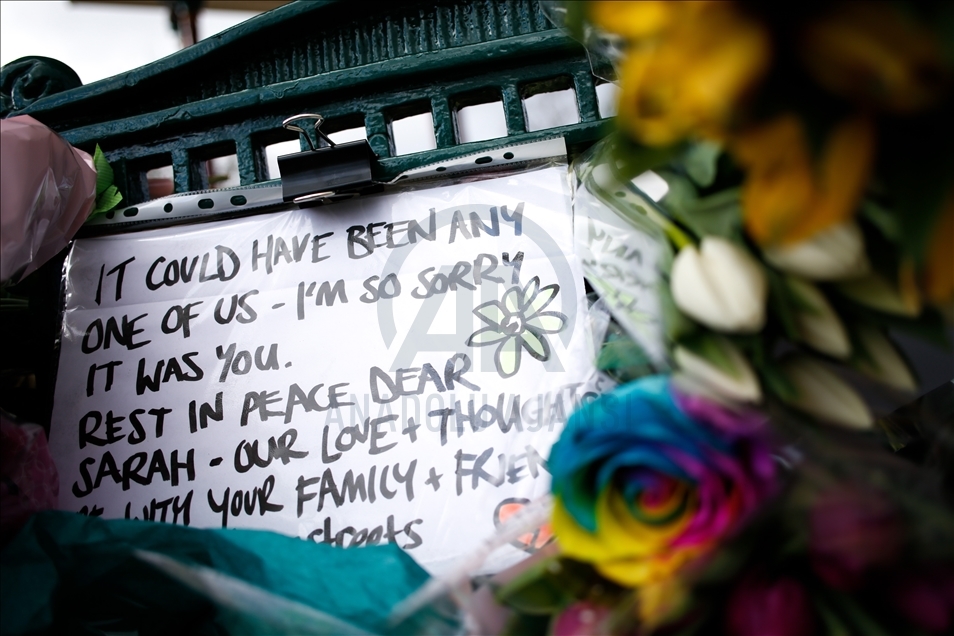 IT COULD HAVE BEEN ANY
ONE OF US - I'M SO SORRY
IT WAS YOU.
REST IN PEACE DEAR
SARAH - OUR LOVE + THOUGHTS
WITH YOUR FAMILY +
streets
AA
ANADOLU AJANSI